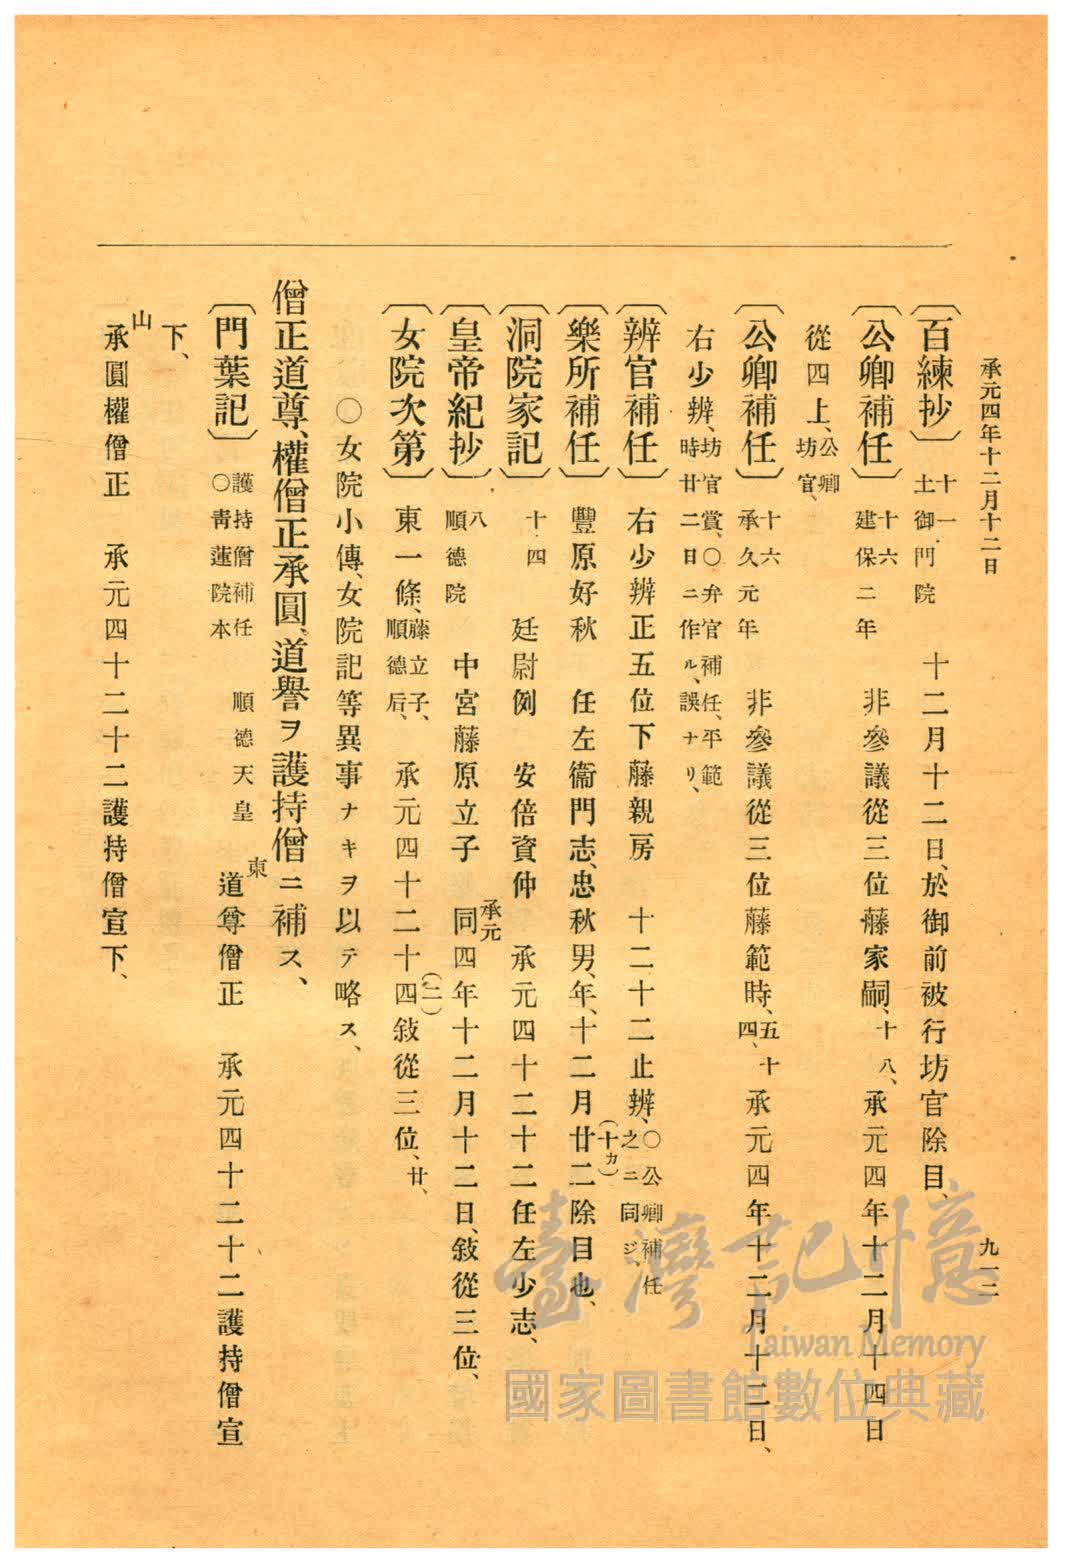 承元四年十二月十二日
九一二
〔百練抄〕十一土御門院 十二月十二日、於御前被行坊官除目、
〔公卿補任〕十六建保二年 非參議從三位藤家嗣、十八、承元四年十二月十四日
從四上、公卿坊官、
〔公卿補任〕十六承久元年 非參議從三位藤範時、五十四、承元四年十二月十二日、
右少辨、坊官賞、〇弁官補任、平範時廿二日ニ作ル、誤ナリ、
〔辨官補任〕 右少辨正五位下藤親房 十二十二止辨、〇公卿補任之ニ同ジ、
〔樂所補任〕 豐原好秋 任左衞門志、忠秋男、年、十二月廿二除目也、
(十カ)
〔洞院家記〕十四 廷尉例 安倍資仲 承元四十二十二任左少志、
〔皇帝紀抄〕八順德院 中宮藤原立子 同四年十二月十二日、敍從三位、
承元
〔女院次第〕 東一條、藤立子、順德后、 承元四十二十四敍從三位、廿、
(二)
〇女院小傳、女院記等異事ナキヲ以テ略ス、
僧正道尊、權僧正承圓、道譽ヲ護持僧ニ補ス、
〔門葉記〕護持僧補任〇靑蓮院本 順德天皇 道尊僧正 承元四十二十二護持僧宣
東
下、
山
承圓權僧正 承元四十二十二護持僧宣下、
臺灣記憶
Taiwan Memory
國家圖書館數位典藏